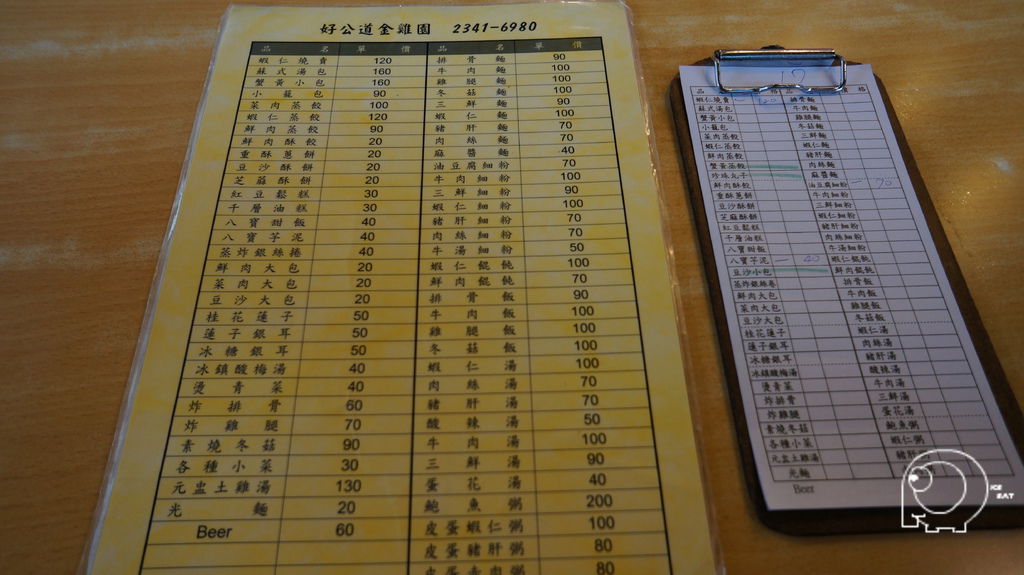 好公道金雞園 2341-6980
品名 單價
蝦仁燒賣 120
蘇式湯包 160
蟹黃小包 160
小籠包 90
菜肉蒸餃 100
蝦仁蒸餃 120
鮮肉蒸餃 90
鮮肉酥餅 20
重酥蔥餅 20
豆沙酥餅 20
芝蔴酥餅 20
紅豆鬆糕 30
千層油糕 30
八寶甜飯 40
八寶芋泥 40
蒸炸銀絲捲 40
鮮肉大包 20
菜肉大包 20
豆沙大包 20
桂花蓮子 50
蓮子銀耳 50
冰糖銀耳 50
冰鎮酸梅湯 40
燙青菜 40
炸排骨 60
炸雞腿 70
素燒冬菇 90
各種小菜 30
元盅土雞湯 130
光麵 20
Beer 60
品名 單價
排骨麵 90
牛肉麵 100
雞腿麵 100
冬菇麵 100
三鮮麵 90
蝦仁麵 100
豬肝麵 70
肉絲麵 70
麻醬麵 40
油豆腐細粉 70
牛肉細粉 100
三鮮細粉 90
蝦仁細粉 100
豬肝細粉 70
肉絲細粉 70
牛湯細粉 50
蝦仁餛飩 100
鮮肉餛飩 100
排骨飯 90
牛肉飯 100
雞腿飯 100
冬菇飯 100
蝦仁湯 100
肉絲湯 70
豬肝湯 70
酸辣湯 50
牛肉湯 100
三鮮湯 90
蛋花湯 40
鮑魚粥 200
皮蛋蝦仁粥 100
皮蛋豬肝粥 80
80
蝦仁燒賣
蘇式湯包
蟹黃小包
小籠包
菜肉蒸餃
蝦仁蒸餃
鮮肉蒸餃
蟹黃蒸餃
珍珠丸子
鮮肉酥餅
重酥蔥餅
豆沙酥餅
芝麻酥餅
紅豆鬆糕
千層油糕
八寶甜飯
八寶芋泥 一 40
豆沙小包
蒸炸銀絲卷
鮮肉大包
菜肉大包
豆沙大包
桂花蓮子
蓮子銀耳
冰糖銀耳
冰鎮酸梅湯
燙青菜
炸排骨
炸雞腿
素燒冬菇
各種小菜
元盅土雞湯
光麵
Beer
排骨麵
牛肉麵
雞腿麵
冬菇麵
三鮮麵
蝦仁麵
豬肝麵
肉絲麵
麻醬麵
油豆腐細粉 一 70
牛肉細粉
三鮮細粉
蝦仁細粉
豬肝細粉
肉絲細粉
牛湯細粉
蝦仁餛飩
鮮肉餛飩
排骨飯
牛肉飯
雞腿飯
冬菇飯
蝦仁湯
肉絲湯
豬肝湯
酸辣湯
牛肉湯
三鮮湯
蛋花湯
鮑魚粥
蝦仁粥
ICE
EAT